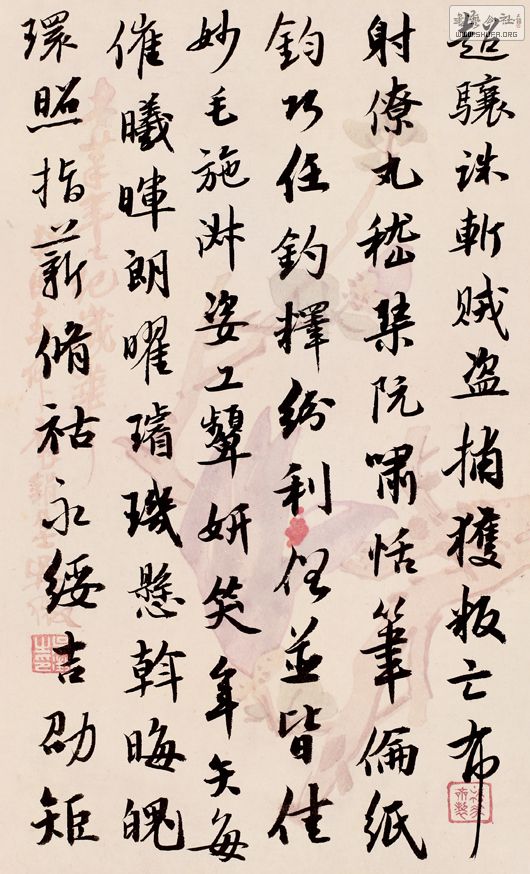 超驤誅斬賊盜捕獲叛亡布
射僚丸嵇琹阮嘯恬筆倫紙
鈞巧任釣釋紛利俗並皆佳
妙毛施淑姿工顰妍笑年矢每
催曦暉朗曜璿璣懸斡晦魄
環照指薪脩祜永綏吉劭矩
WWW.SHUFA.ORG